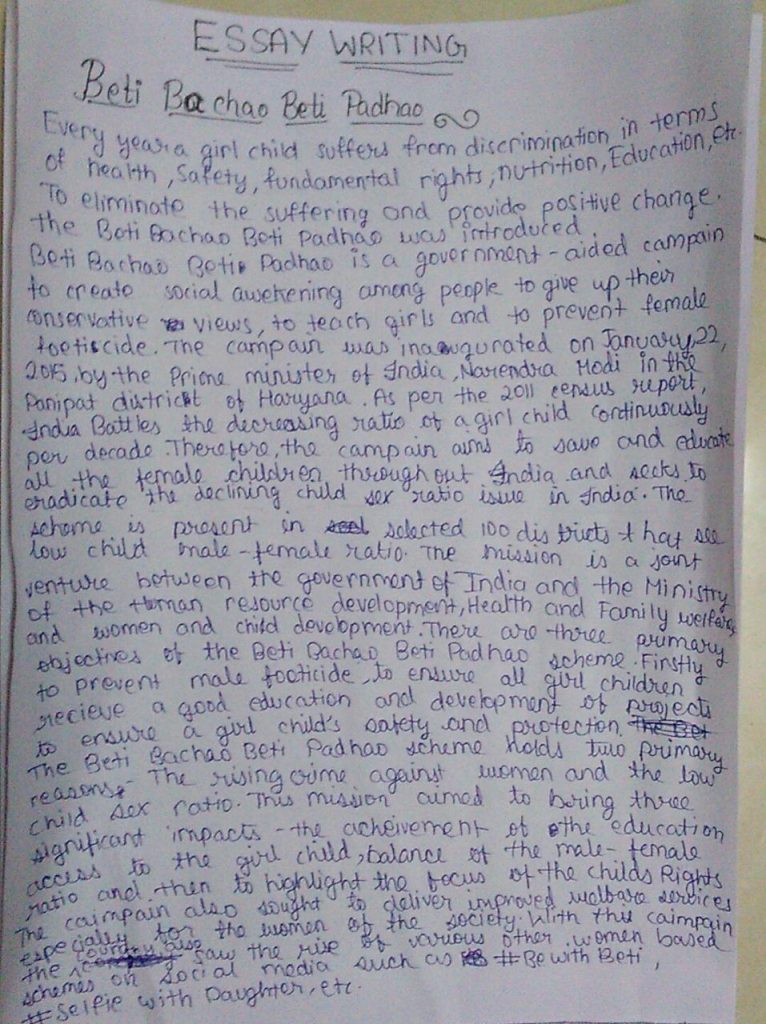 ESSAY WRITING
Beti Bachao Beti Padhao
Every year a girl child suffers from discrimination in terms
of health, Safety, fundamental rights, nutrition, Education, etc.
To eliminate the suffering and provide positive change.
the Beti Bachao Beti Padhao was introduced.
Beti Bachao Beti Padhao is a government-aided campain
to create social awekening among people to give up their
conservative views, to teach girls and to prevent female
foeticide. The campain was inaugurated on January, 22,
2015, by the Prime minister of India, Narendra Modi in the
Panipat district of Haryana. As per the 2011 census report,
India Battles the decreasing ratio of a girl child continuously
per decade. Therefore, the campain aims to save and educate
all the female children throughout India and seeks to
eradicate the declining child sex ratio issue in India. The
scheme is present in selected 100 districts that see
low child male-female ratio. The mission is a joint
venture between the government of India and the Ministry
of the Human resource development, Health and Family welfare,
and women and child development. There are three primary
objectives of the Beti Bachao Beti Padhao scheme. Firstly
to prevent male foeticide, to ensure all girl children
recieve a good education and development of projects
to ensure a girl child's safety and protection. The Bet
The Beti Bachao Beti Padhao scheme holds two primary
reasons- The rising crime against women and the low
child sex ratio. This mission aimed to bring three
significant impacts - the acheivement of the education
access to the girl child, balance of the male-female
ratio and then to highlight the focus of the childs Rights
The caimpain also sought to deliver improved welbare services
especially for the women of the society. With this caimpain
the country also saw the rise of various other women based
schemes on social media such as #Be with Beti,
#Selfie with Daughter, etc.